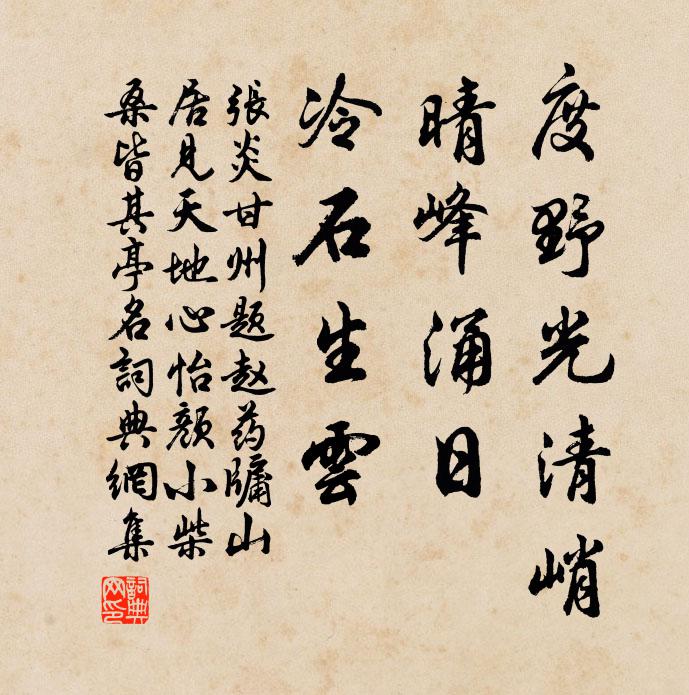 度野光清峭
晴峰涌日
冷石生雲
張炎甘州題赵药牖山
居見天地心怡顏小柴
桑皆其亭名詞典網集
詞典網印